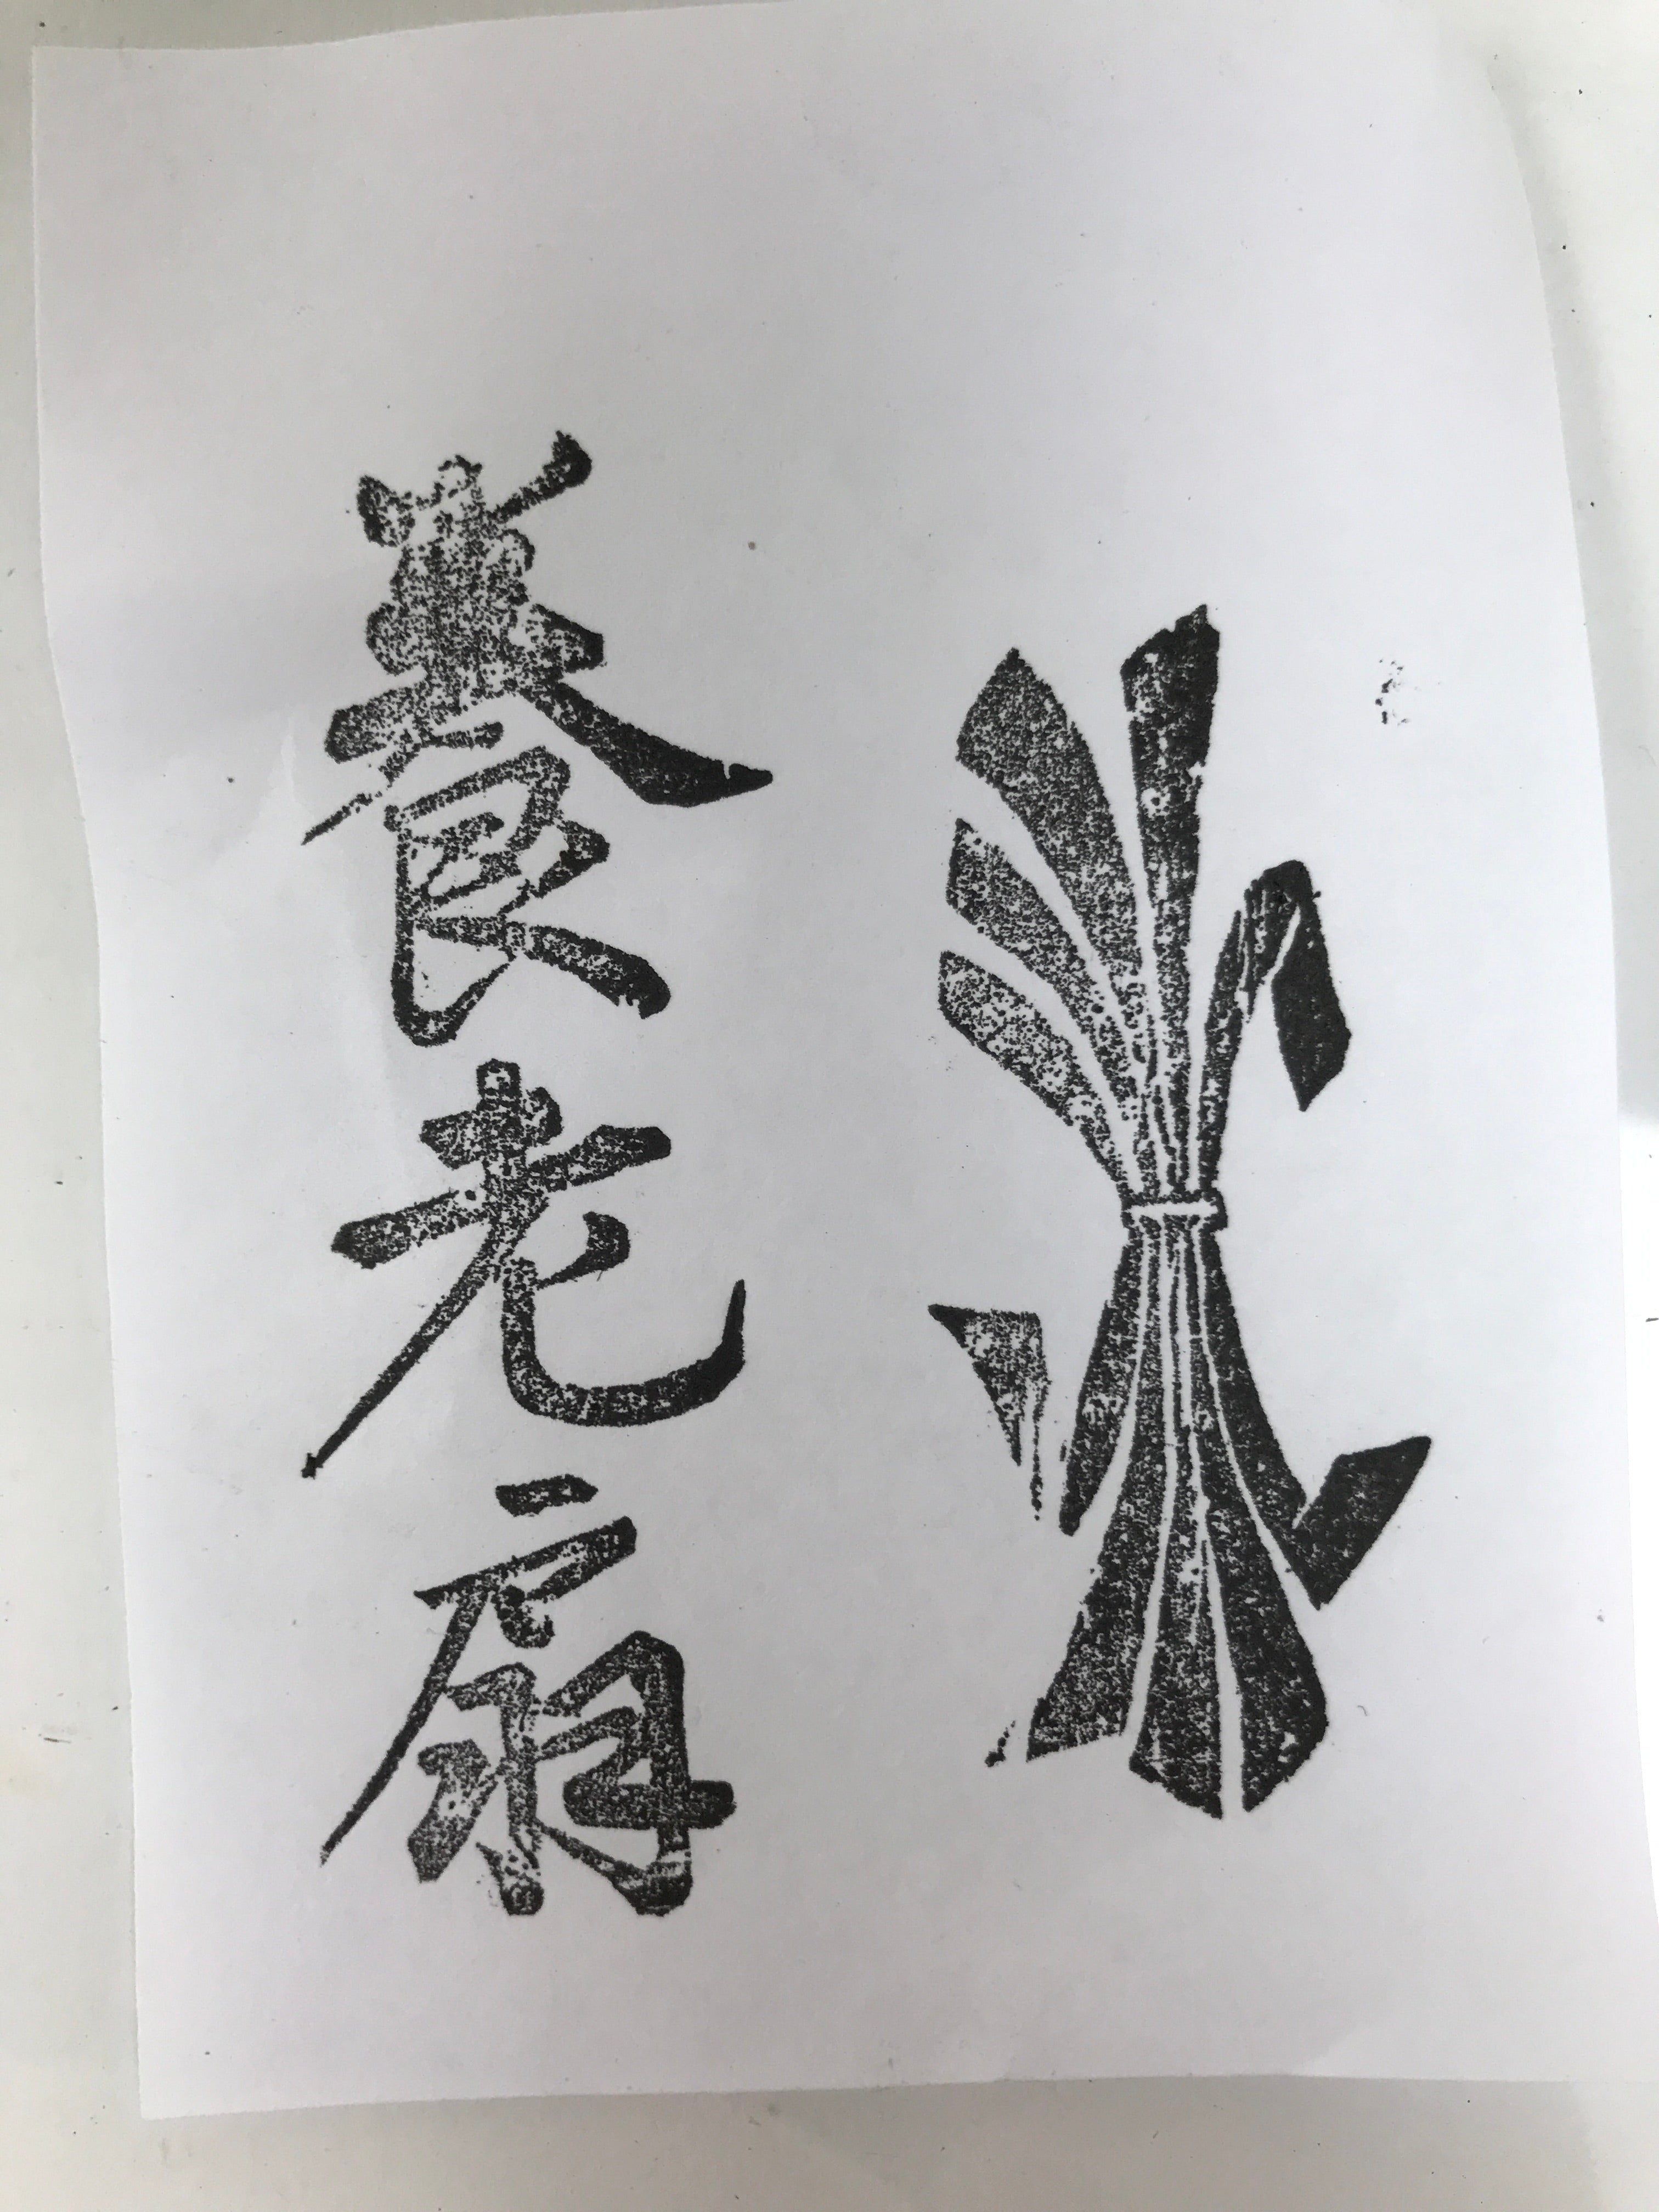 養老扇